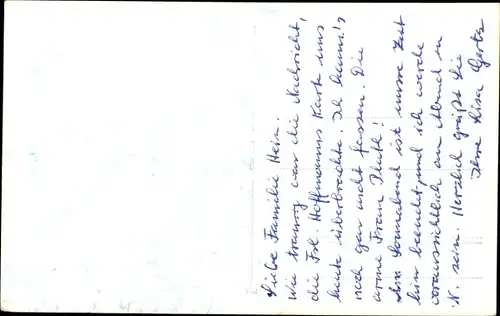 Liebe Familie Hein.
Wie traurig war die Nachricht,
die Frl. Hoffmanns Karte uns
heute überbrachte. Ich kann's
noch gar nicht fassen. Die
arme Frau
Am Sonnabend ist unsre Zeit
hier beendet und ich werde
voraussichtlich am Abend in
N. sein. Herzlich grüßt Sie
Ihre Lisa